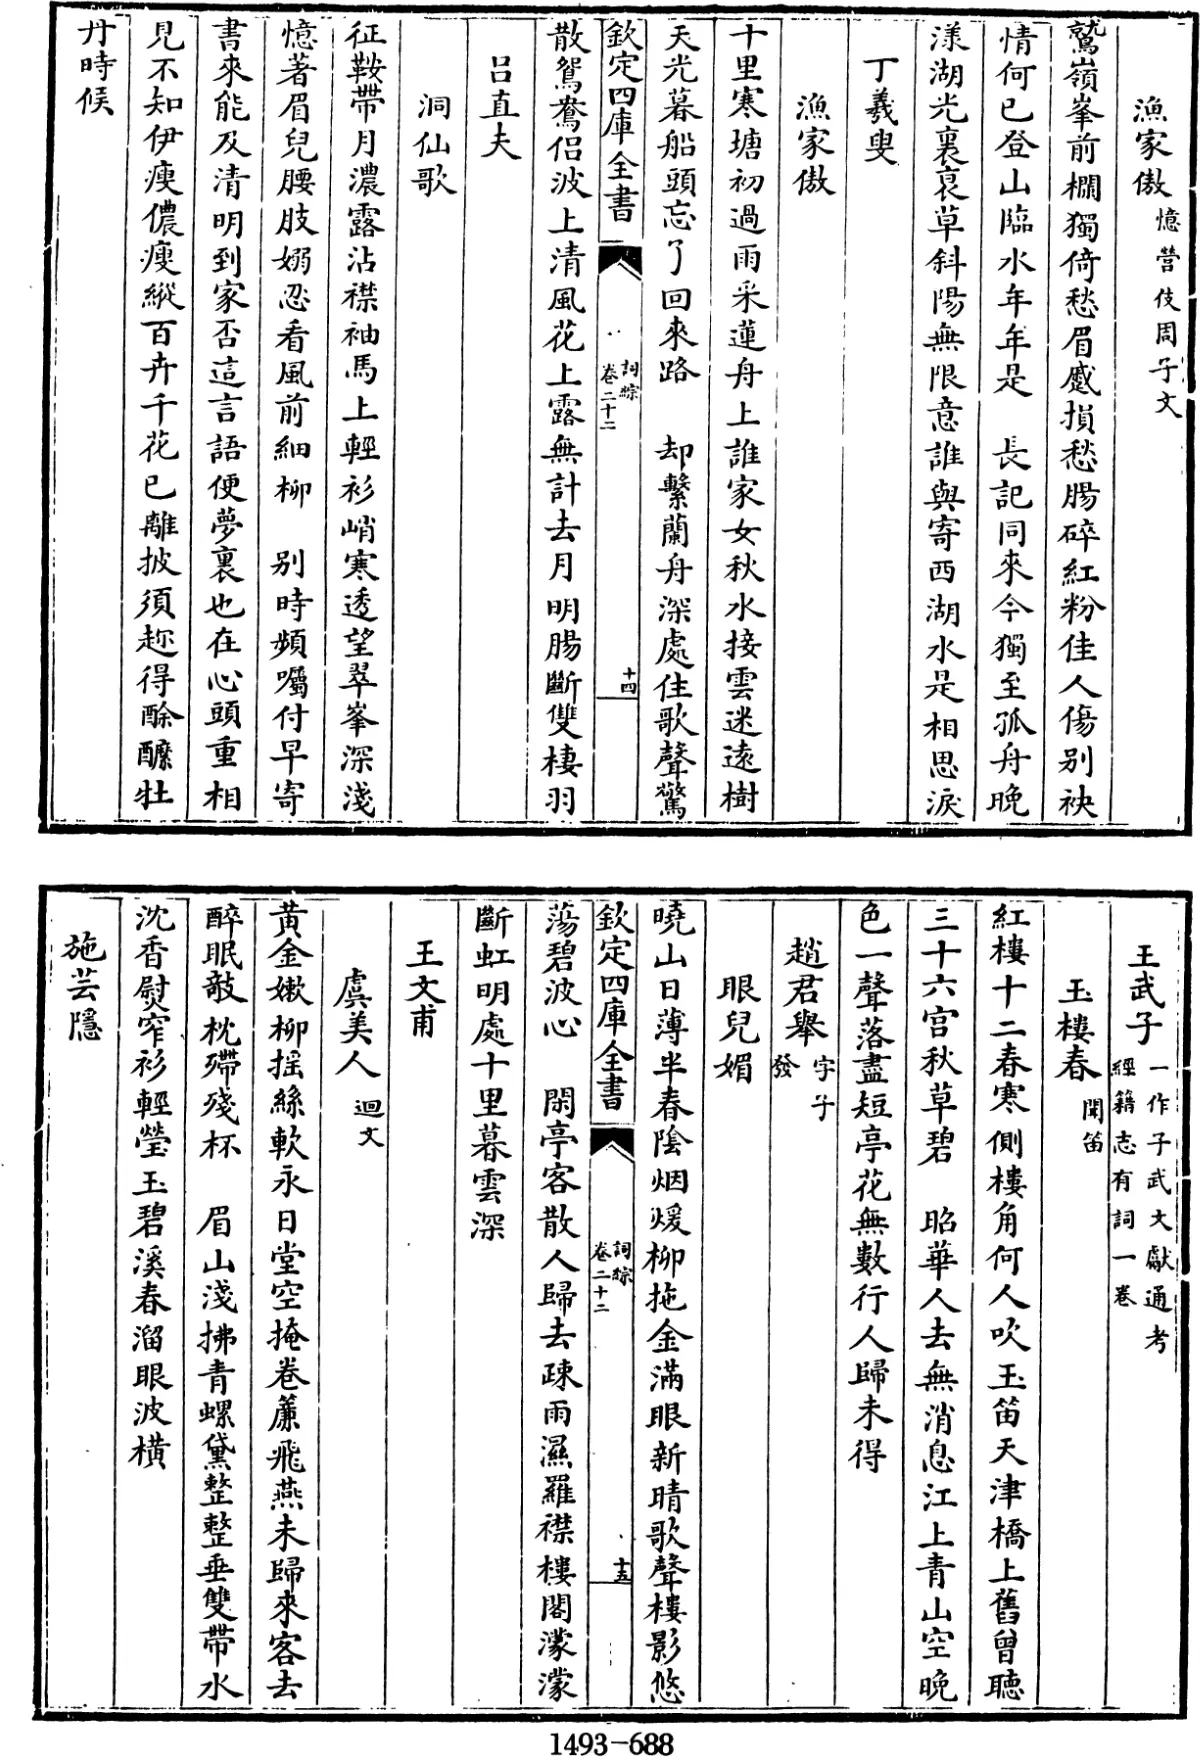 漁家傲憶營伎周子文
鷲嶺峯前欄獨倚愁眉蹙損愁腸碎紅粉佳人傷别袂
情何已登山臨水年年是　長記同來今獨至孤舟晚
漾湖光裏衰草斜陽無限意誰與寄西湖水是相思淚
丁羲叟
漁家傲
十里寒塘初過雨采蓮舟上誰家女秋水接雲迷遠樹
天光暮船頭忘了回來路　却繫蘭舟深處住歌聲驚
欽定四庫全書　詞綜卷二十二　十四
散鴛鴦侣波上清風花上露無計去月明腸斷雙棲羽
吕直夫
洞仙歌
征鞍帶月濃露沾襟袖馬上輕衫峭寒透望翠峯深淺
憶著眉兒腰肢嫋忍看風前細柳　别時頻囑付早寄
書來能及清明到家否這言語便夢裏也在心頭重相
見不知伊瘦儂瘦縱百卉千花已離披須趂得酴醿牡
丹時候
王武子一作子武文獻通考經籍志有詞一卷
玉樓春聞笛
紅樓十二春寒側樓角何人吹玉笛天津橋上舊曾聽
三十六宫秋草碧　昭華人去無消息江上青山空晚
色一聲落盡短亭花無數行人歸未得
趙君舉字子發
眼兒媚
曉山日薄半春陰烟煖柳拖金滿眼新晴歌聲樓影悠
欽定四庫全書　詞綜卷二十二　十五
蕩碧波心　閑亭客散人歸去疎雨濕羅襟樓閣濛濛
斷虹明處十里暮雲深
王文甫
虞美人迴文
黄金嫰柳摇絲軟永日堂空掩卷簾飛燕未歸來客去
醉眠敧枕殢殘杯　眉山淺拂青螺黛整整垂雙帶水
沈香熨窄衫輕瑩玉碧溪春溜眼波橫
施芸隱
1493-688